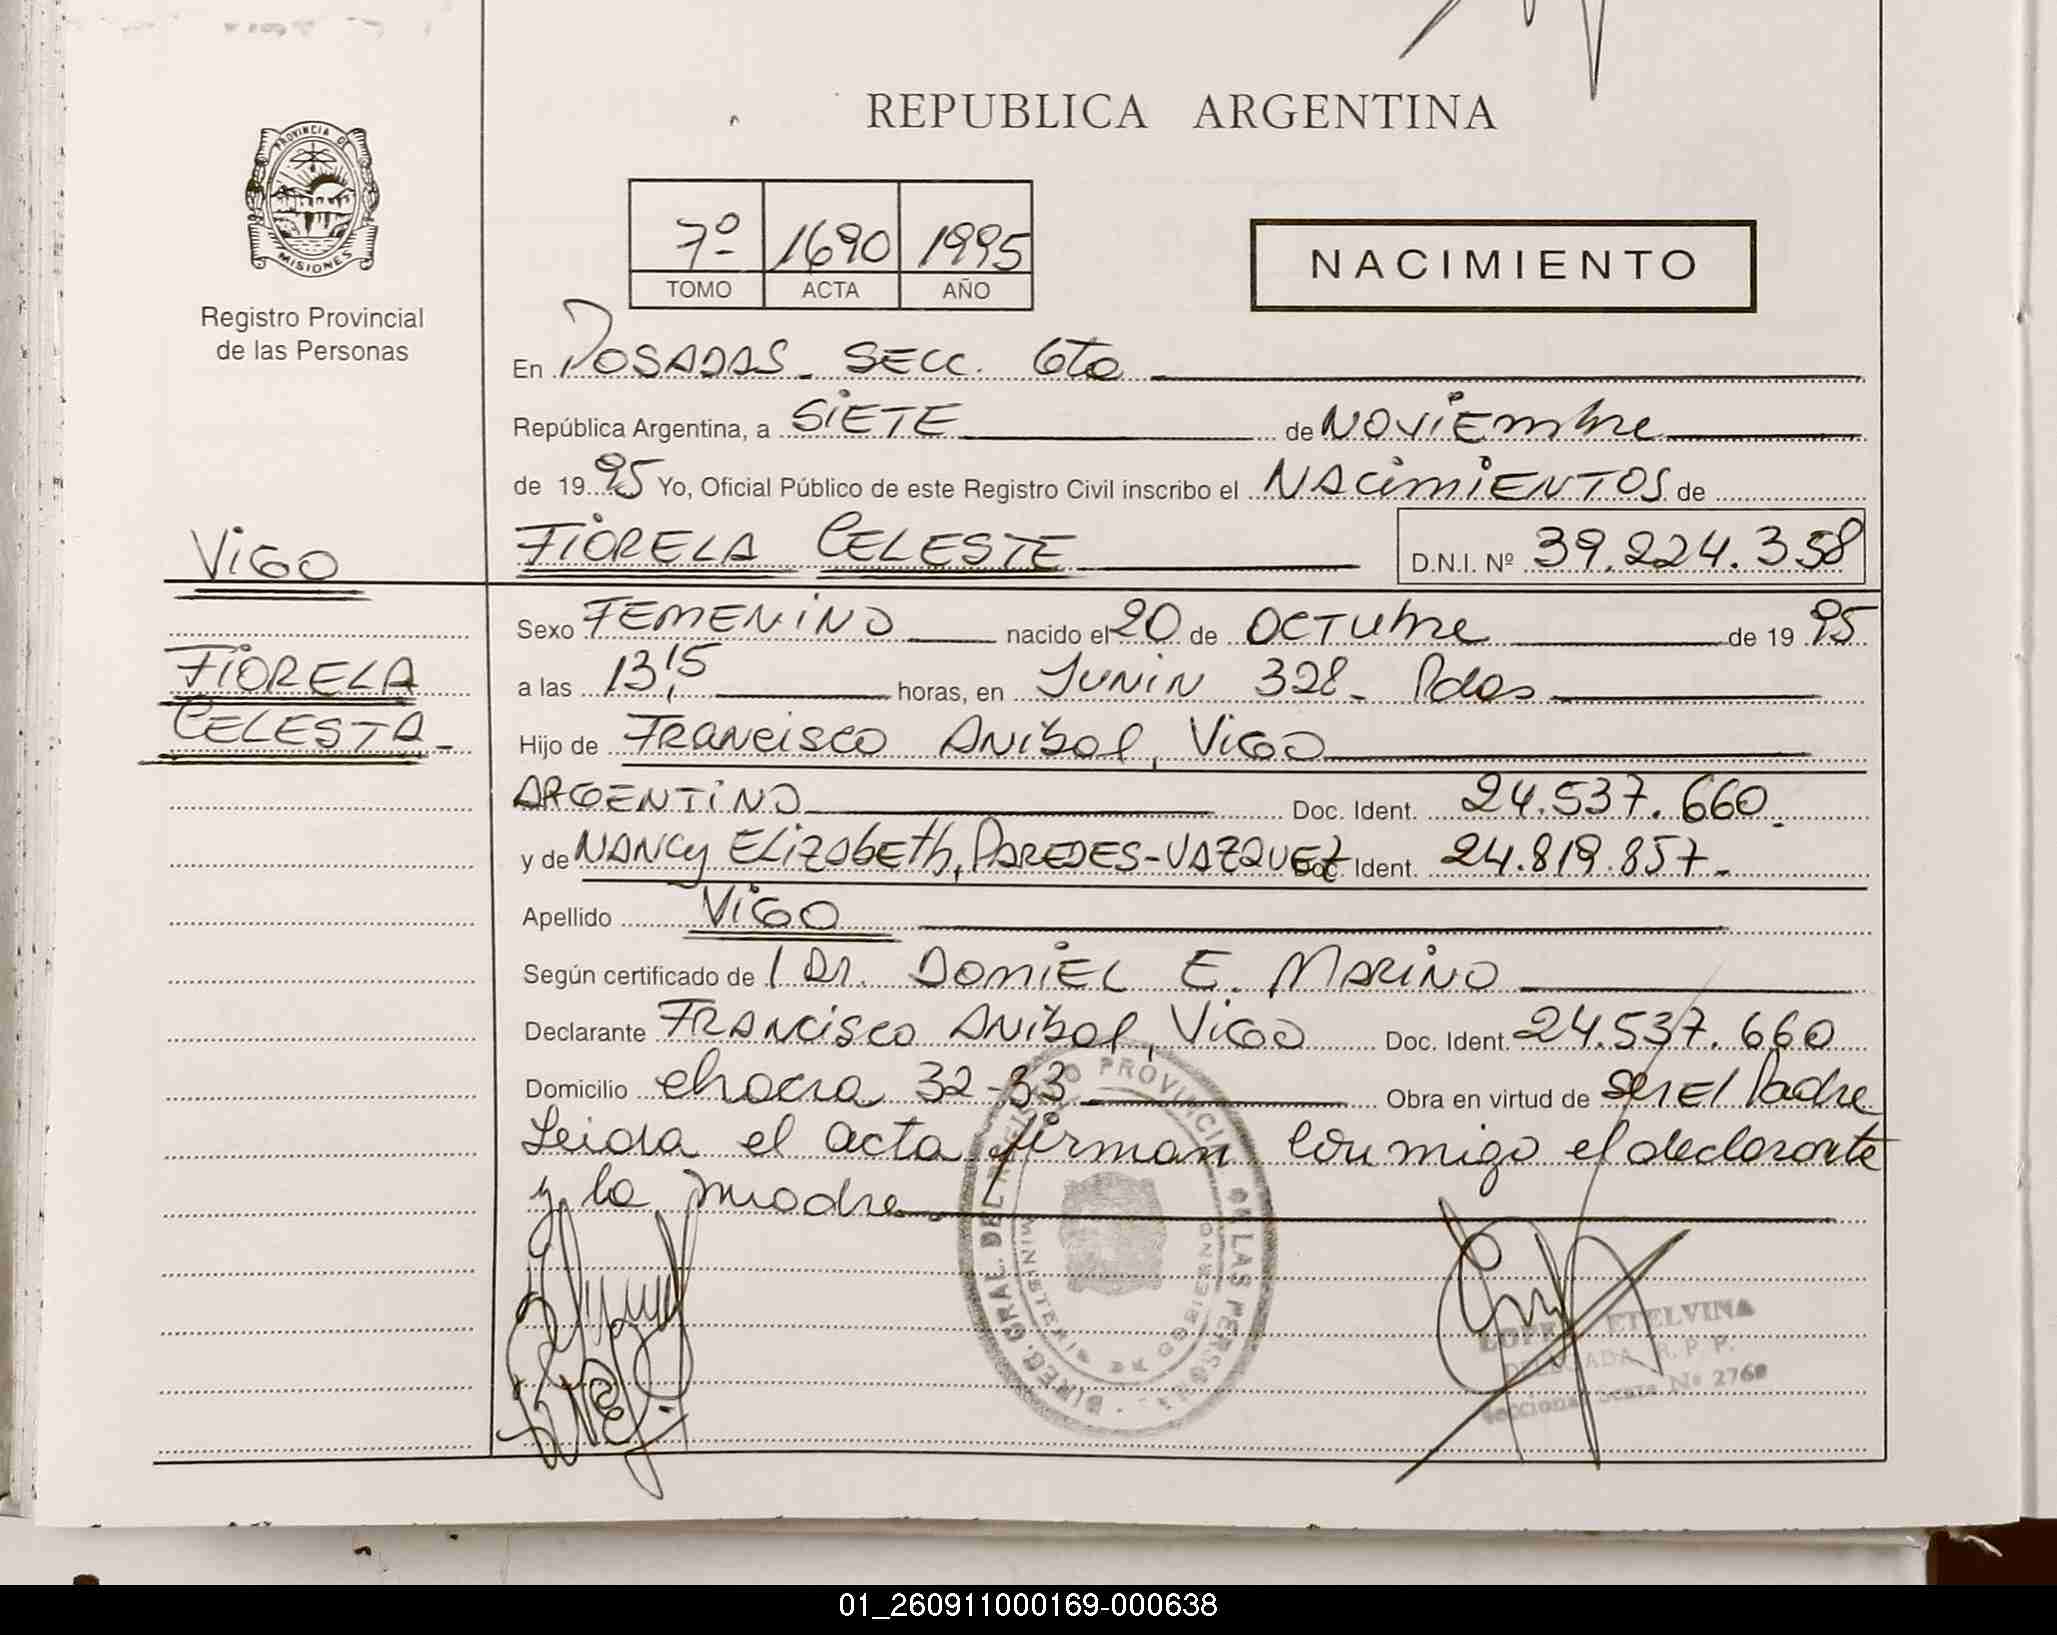 REPUBLICA ARGENTINA
PROVINCIA DE
MISIONES
Registro Provincial
de las Personas
7º 1690 1995
TOMO ACTA AÑO
NACIMIENTO
En POSADAS - SECC. 6ta
República Argentina, a SIETE de NOVIEmbre
de 1995 Yo, Oficial Público de este Registro Civil inscribo el NACIMIENTOS de
VIGO
FIORELA CELESTE D.N.I. Nº 39.224.358
Sexo FEMENINO nacido el 20 de OCTUbre de 1995
FIORELA
a las 13,15 horas, en JUNIN 328- Pdas
CELESTA-
Hijo de FRANCISCO ANIBAL, VIGO
ARGENTINO Doc. Ident. 24.537.660.
y de NANCY ELIZABETH, PAREDES-VAZQUEZ Doc. Ident. 24.819.857-
Apellido VIGO
Según certificado de l DR. DANIEL E. MARINO
Declarante FRANCISCO ANIBAL, VIGO Doc. Ident. 24.537.660
Domicilio chacra 32-33 Obra en virtud de ser El Padre
Leida el acta firman conmigo el declarante
y la madre.
DIREC. GRAL. DEL REGISTRO PROVINCIAL DE LAS PERSONAS
MINISTERIO DE GOBIERNO
LOPEZ ETELVINA
DELEGADA R. P. P.
Seccional Sexta Nº 2760
01_260911000169-000638